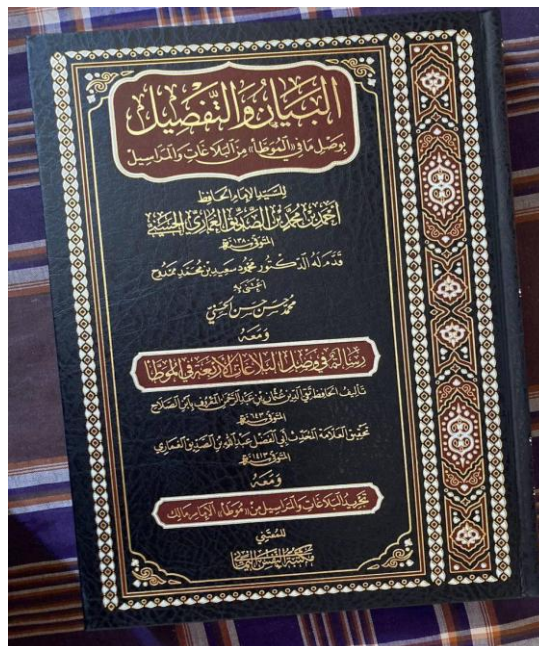 البيان والتفصيل
بوصل ما في «الموطأ» من البلاغات والمراسيل
للسيد الإمام الحافظ
أحمد بن محمد بن الصديق الغماري الحسني
المتوفى ١٣٨٠هـ
قدم له الدكتور محمود سعيد بن محمد ممدوح
اعتنى به
محمد حسن حسن الحسني
ومعه
رسالة في وصل البلاغات الأربعة في الموطأ
تأليف الحافظ تقي الدين عثمان بن عبد الرحمن المعروف بابن الصلاح
المتوفى ٦٤٣هـ
تحقيق العلامة المحدث أبي الفضل عبد الله بن الصديق الغماري
المتوفى ١٤١٣هـ
ومعه
تجريد البلاغات والمراسيل من «موطأ» الإمام مالك
للمعتني
مكتبة النفس اليماني